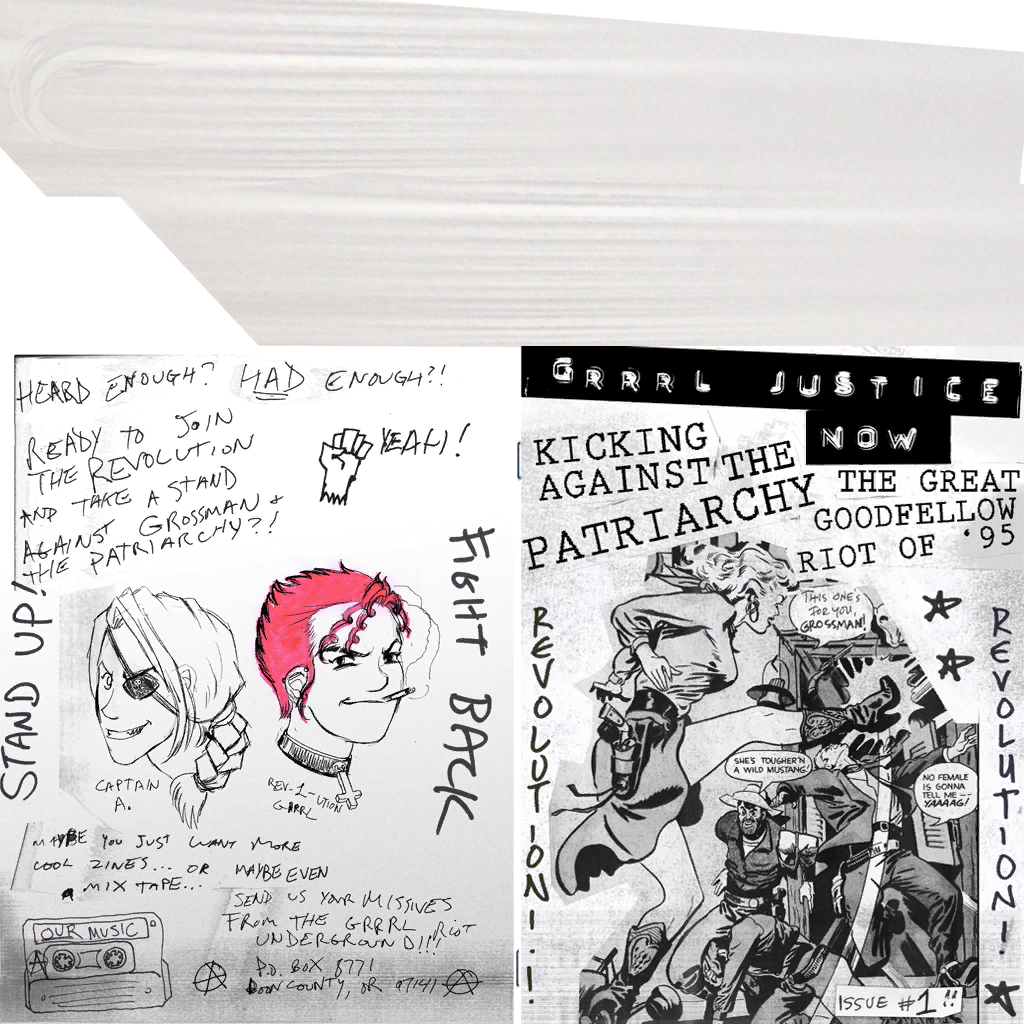 HEARD ENOUGH? HAD ENOUGH?!
READY TO JOIN
THE REVOLUTION
AND TAKE A STAND
AGAINST GROSSMAN &
THE PATRIARCHY?!
YEAH!
STAND UP!
FIGHT BACK
CAPTAIN
A.
REV-L-UTION
GRRL
MAYBE YOU JUST WANT MORE
COOL ZINES... OR MAYBE EVEN
A MIX TAPE...
SEND US YOUR MISSIVES
FROM THE GRRRL RIOT
UNDERGROUND!!!
P.O. BOX 8771
BOON COUNTY, OR 97141
OUR MUSIC
GRRRL JUSTICE
NOW
KICKING
AGAINST THE
PATRIARCHY
THE GREAT
GOODFELLOW
RIOT OF '95
REVOLUTION!!
REVOLUTION!
THIS ONE'S
FOR YOU,
GROSSMAN!
SHE'S TOUGHER'N
A WILD MUSTANG!
NO FEMALE
IS GONNA
TELL ME--
YAAAAG!
ISSUE #1!!